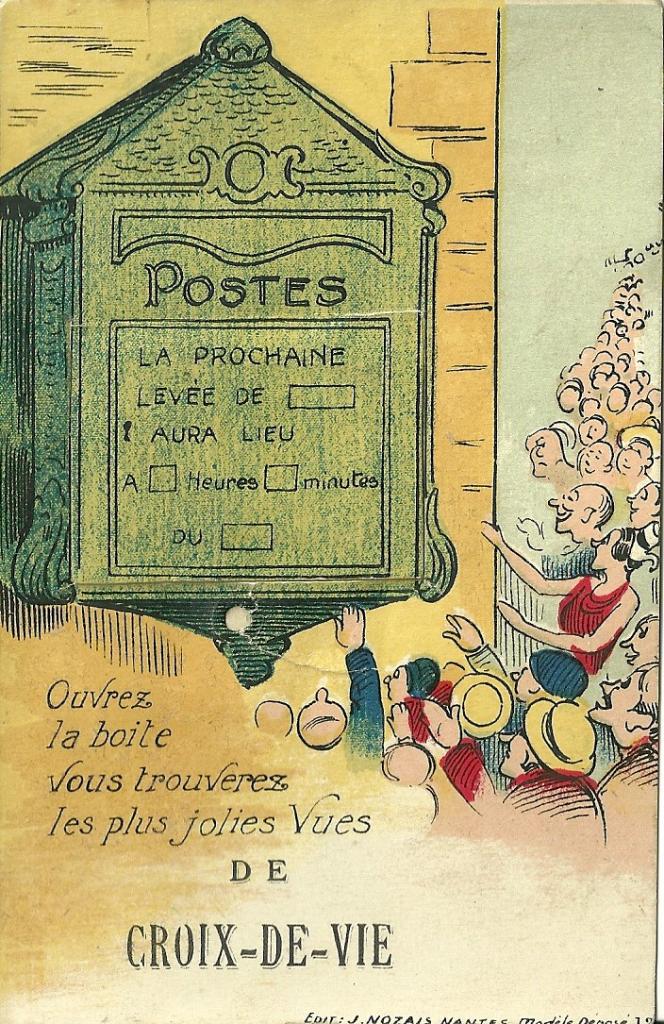 POSTES
LA PROCHAINE
LEVÉE DE
AURA LIEU
A Heures minutes
DU
Ouvrez
la boite
vous trouverez
les plus jolies Vues
DE
CROIX-DE-VIE
EDIT: J. NOZAIS NANTES Modèle Déposé